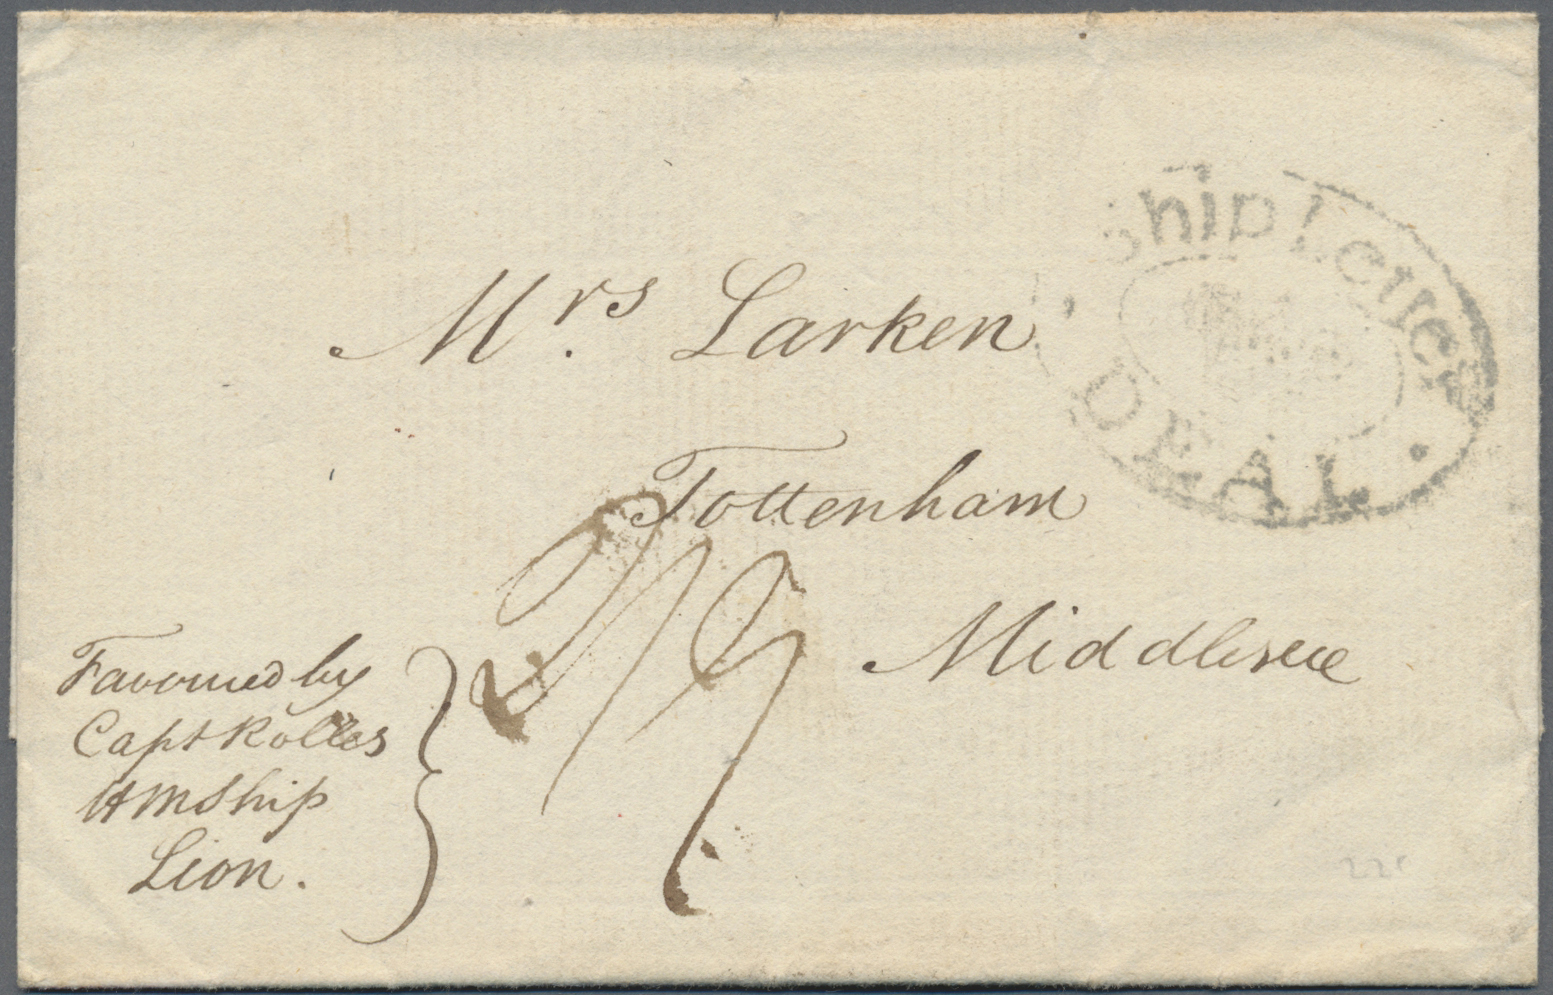 Ship Letter
DEAL
Mrs. Larken
Tottenham
Middlesex
Favoured by
Capt Rolles
HMShip
Lion.